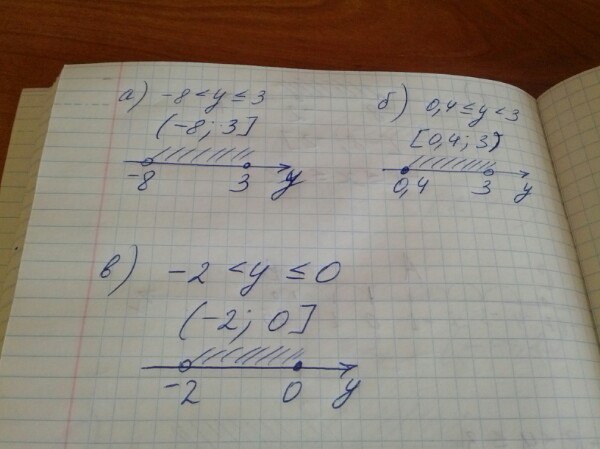 а) -8 < y ≤ 3
(-8; 3]
-8 3 y
б) 0,4 ≤ y < 3
[0,4; 3)
0,4 3 y
в) -2 < y ≤ 0
(-2; 0]
-2 0 y